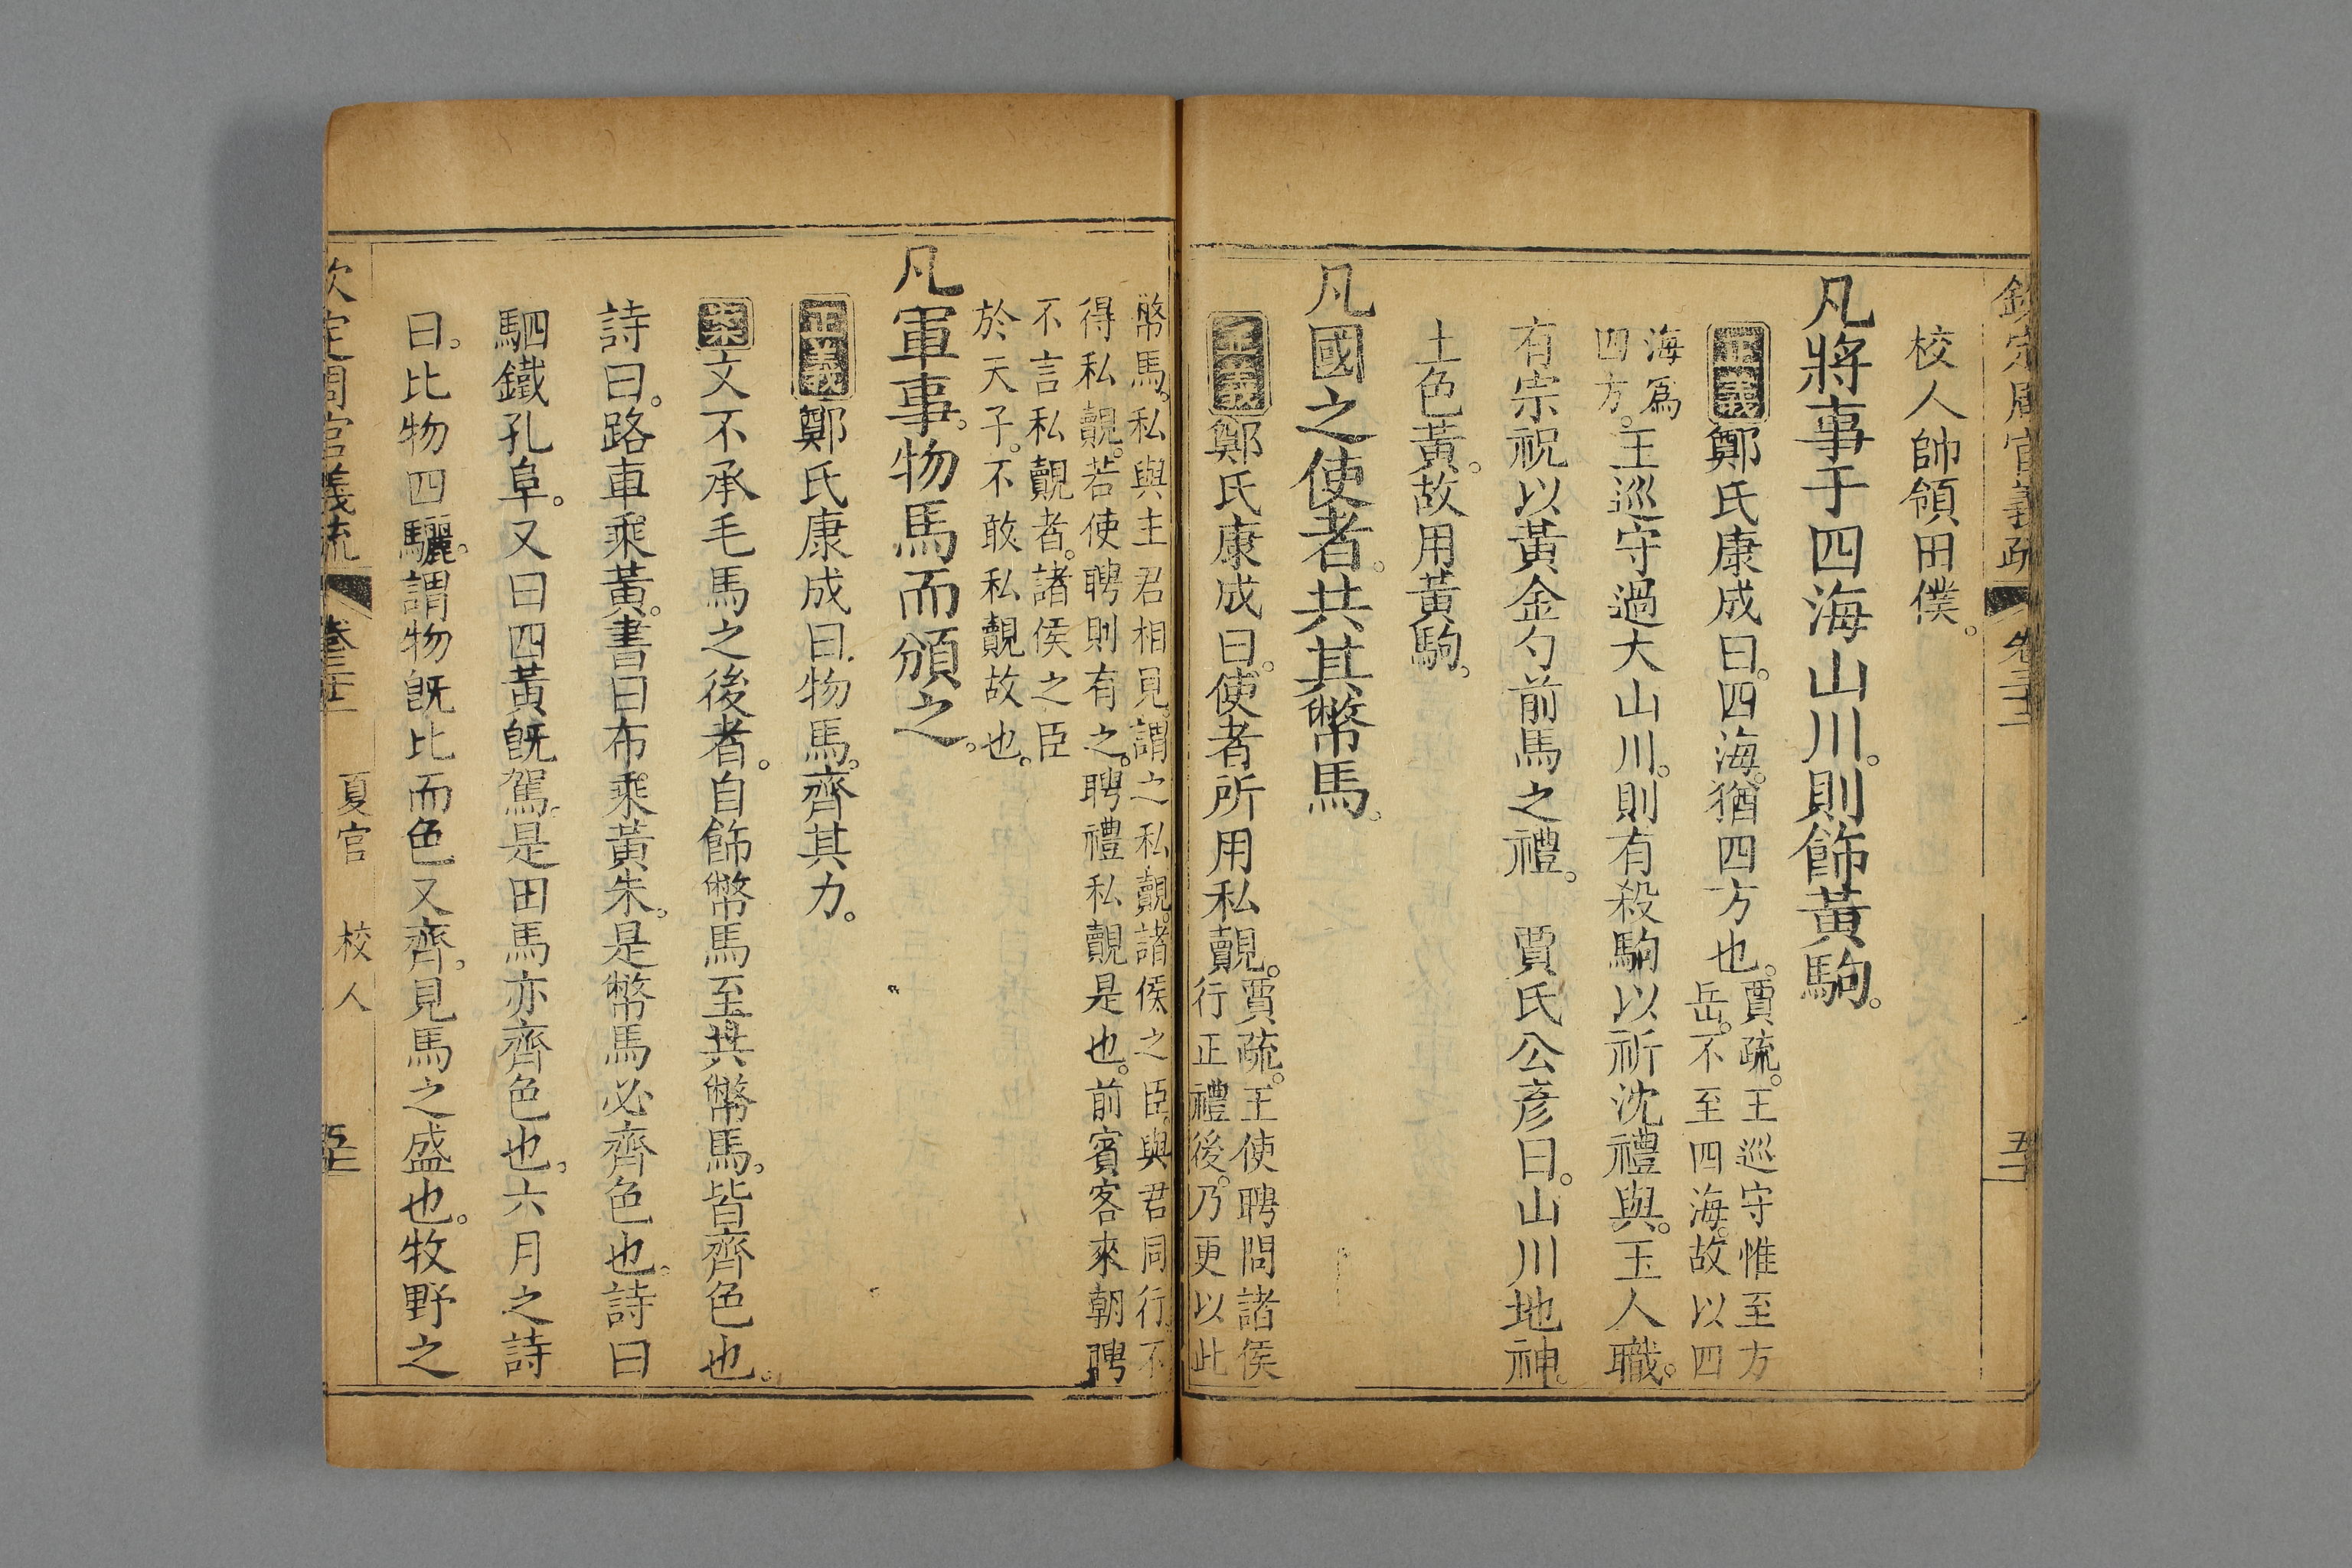 欽定周官義疏 卷三十二
校人帥領田僕。
凡將事于四海山川。則飾黃駒。
正義鄭氏康成曰。四海。猶四方也。賈疏。王巡守惟至方
岳。不至四海。故以四
海爲
四方。王巡守過大山川。則有殺駒以祈沈禮與。玉人職。
有宗祝以黃金勺前馬之禮。 賈氏公彥曰。山川地神。
土色黃。故用黃駒。
凡國之使者。共其幣馬。
正義鄭氏康成曰。使者所用私覿。賈疏。王使聘問諸侯
行正禮後。乃更以此
幣馬。私與主君相見。謂之私覿。諸侯之臣。與君同行。不
得私覿。若使聘則有之。聘禮私覿是也。前賓客來朝聘
不言私覿者。諸侯之臣
於天子。不敢私覿故也。
凡軍事。物馬而頒之。
正義鄭氏康成曰。物馬。齊其力。
案文不承毛馬之後者。自飾幣馬至共幣馬。皆齊色也。
詩曰。路車乘黃。書曰布乘黃朱。是幣馬必齊色也。詩曰
駟鐵孔阜。又曰四黃旣駕。是田馬亦齊色也。六月之詩
曰。比物四驪。謂物旣比而色又齊。見馬之盛也。牧野之
欽定周官義疏 卷三十二 夏官 校人